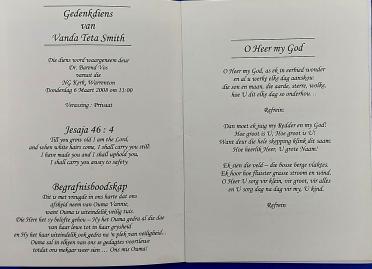 Gedenkdiens
van
Vanda Teta Smith
Die diens word waargeneem deur
Dr. Barend Vos
vanuit die
NG Kerk, Warrenton
Donderdag 6 Maart 2008 om 11:00
Verassing : Privaat
Jesaja 46 : 4
Till you grow old I am the Lord,
and when white hairs come, I shall carry you still;
I have made you and I shall uphold you,
I shall carry you away to safety.
Begrafnisboodskap
Dit is met vreugde in ons harte dat ons
afskeid neem van Ouma Vanna,
want Ouma is uiteindelik veilig tuis.
Die Here het sy belofte gehou – Hy het Ouma gedra al die dae
van haar lewe tot in haar grysheid
en Hy het haar uiteindelik ook gedra na 'n plek van veiligheid.
Ouma sal in elkeen van ons se gedagtes voortlewe
totdat ons mekaar weer sien … Ons mis Ouma!
O Heer my God
O Heer my God, as ek in eerbied wonder
en al u werke elke dag aanskou:
die son en maan, die aarde, sterre, wolke,
hoe U dit elke dag so onderhou…
Refrein:
Dan moet ek juig my Redder en my God!
Hoe groot is U, Hoe groot is U!
Want deur die hele skepping klink dit saam:
Hoe heerlik Heer, U grote Naam!
Ek sien die veld – die bosse berge vlaktes,
Ek hoor hoe fluister grasse stroom en wind,
O Heer U sorg vir klein, vir groot, vir alles
en U sorg dag na dag vir my, U kind.
Refrein